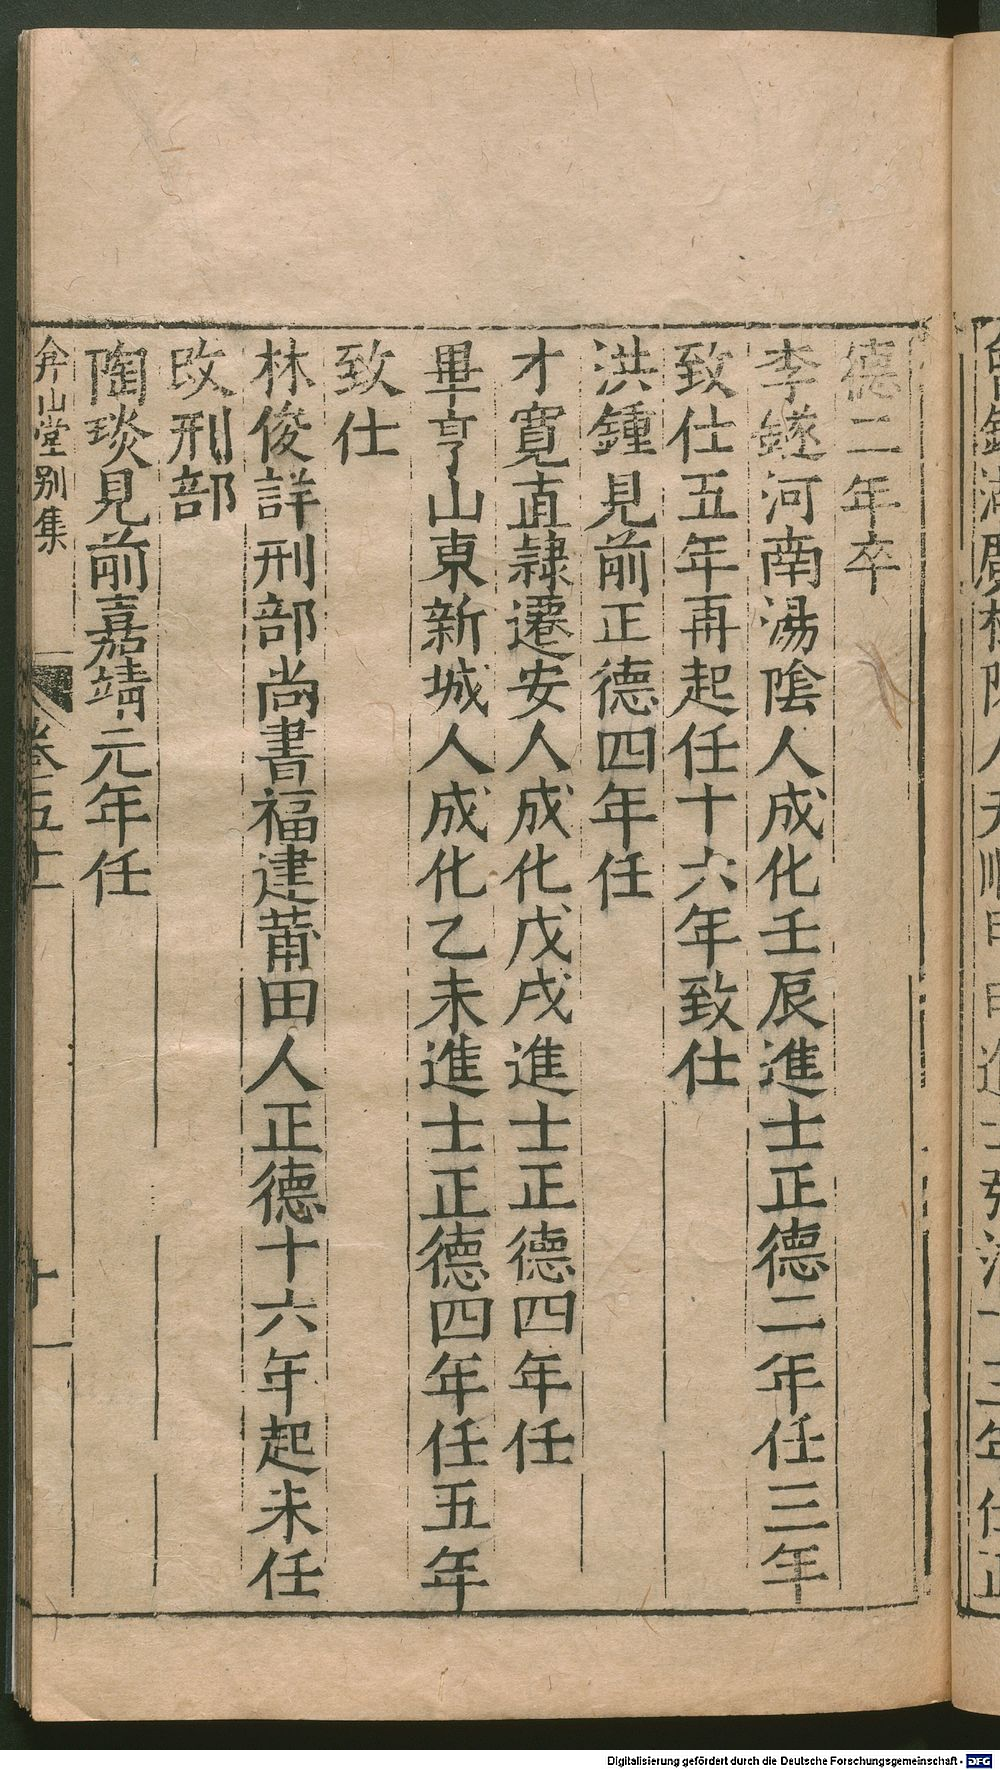 德二年卒
李鐩河南湯陰人成化壬辰進士正德二年任三年
致仕五年再起任十六年致仕
洪鍾見前正德四年任
才寬直隷遷安人成化戊戌進士正德四年任
畢亨山東新城人成化乙未進士正德四年任五年
致仕
林俊詳刑部尚書福建莆田人正德十六年起未任
改刑部
陶琰見前嘉靖元年任
弇山堂别集 卷五十 十一
Digitalisierung gefördert durch die Deutsche Forschungsgemeinschaft - DFG